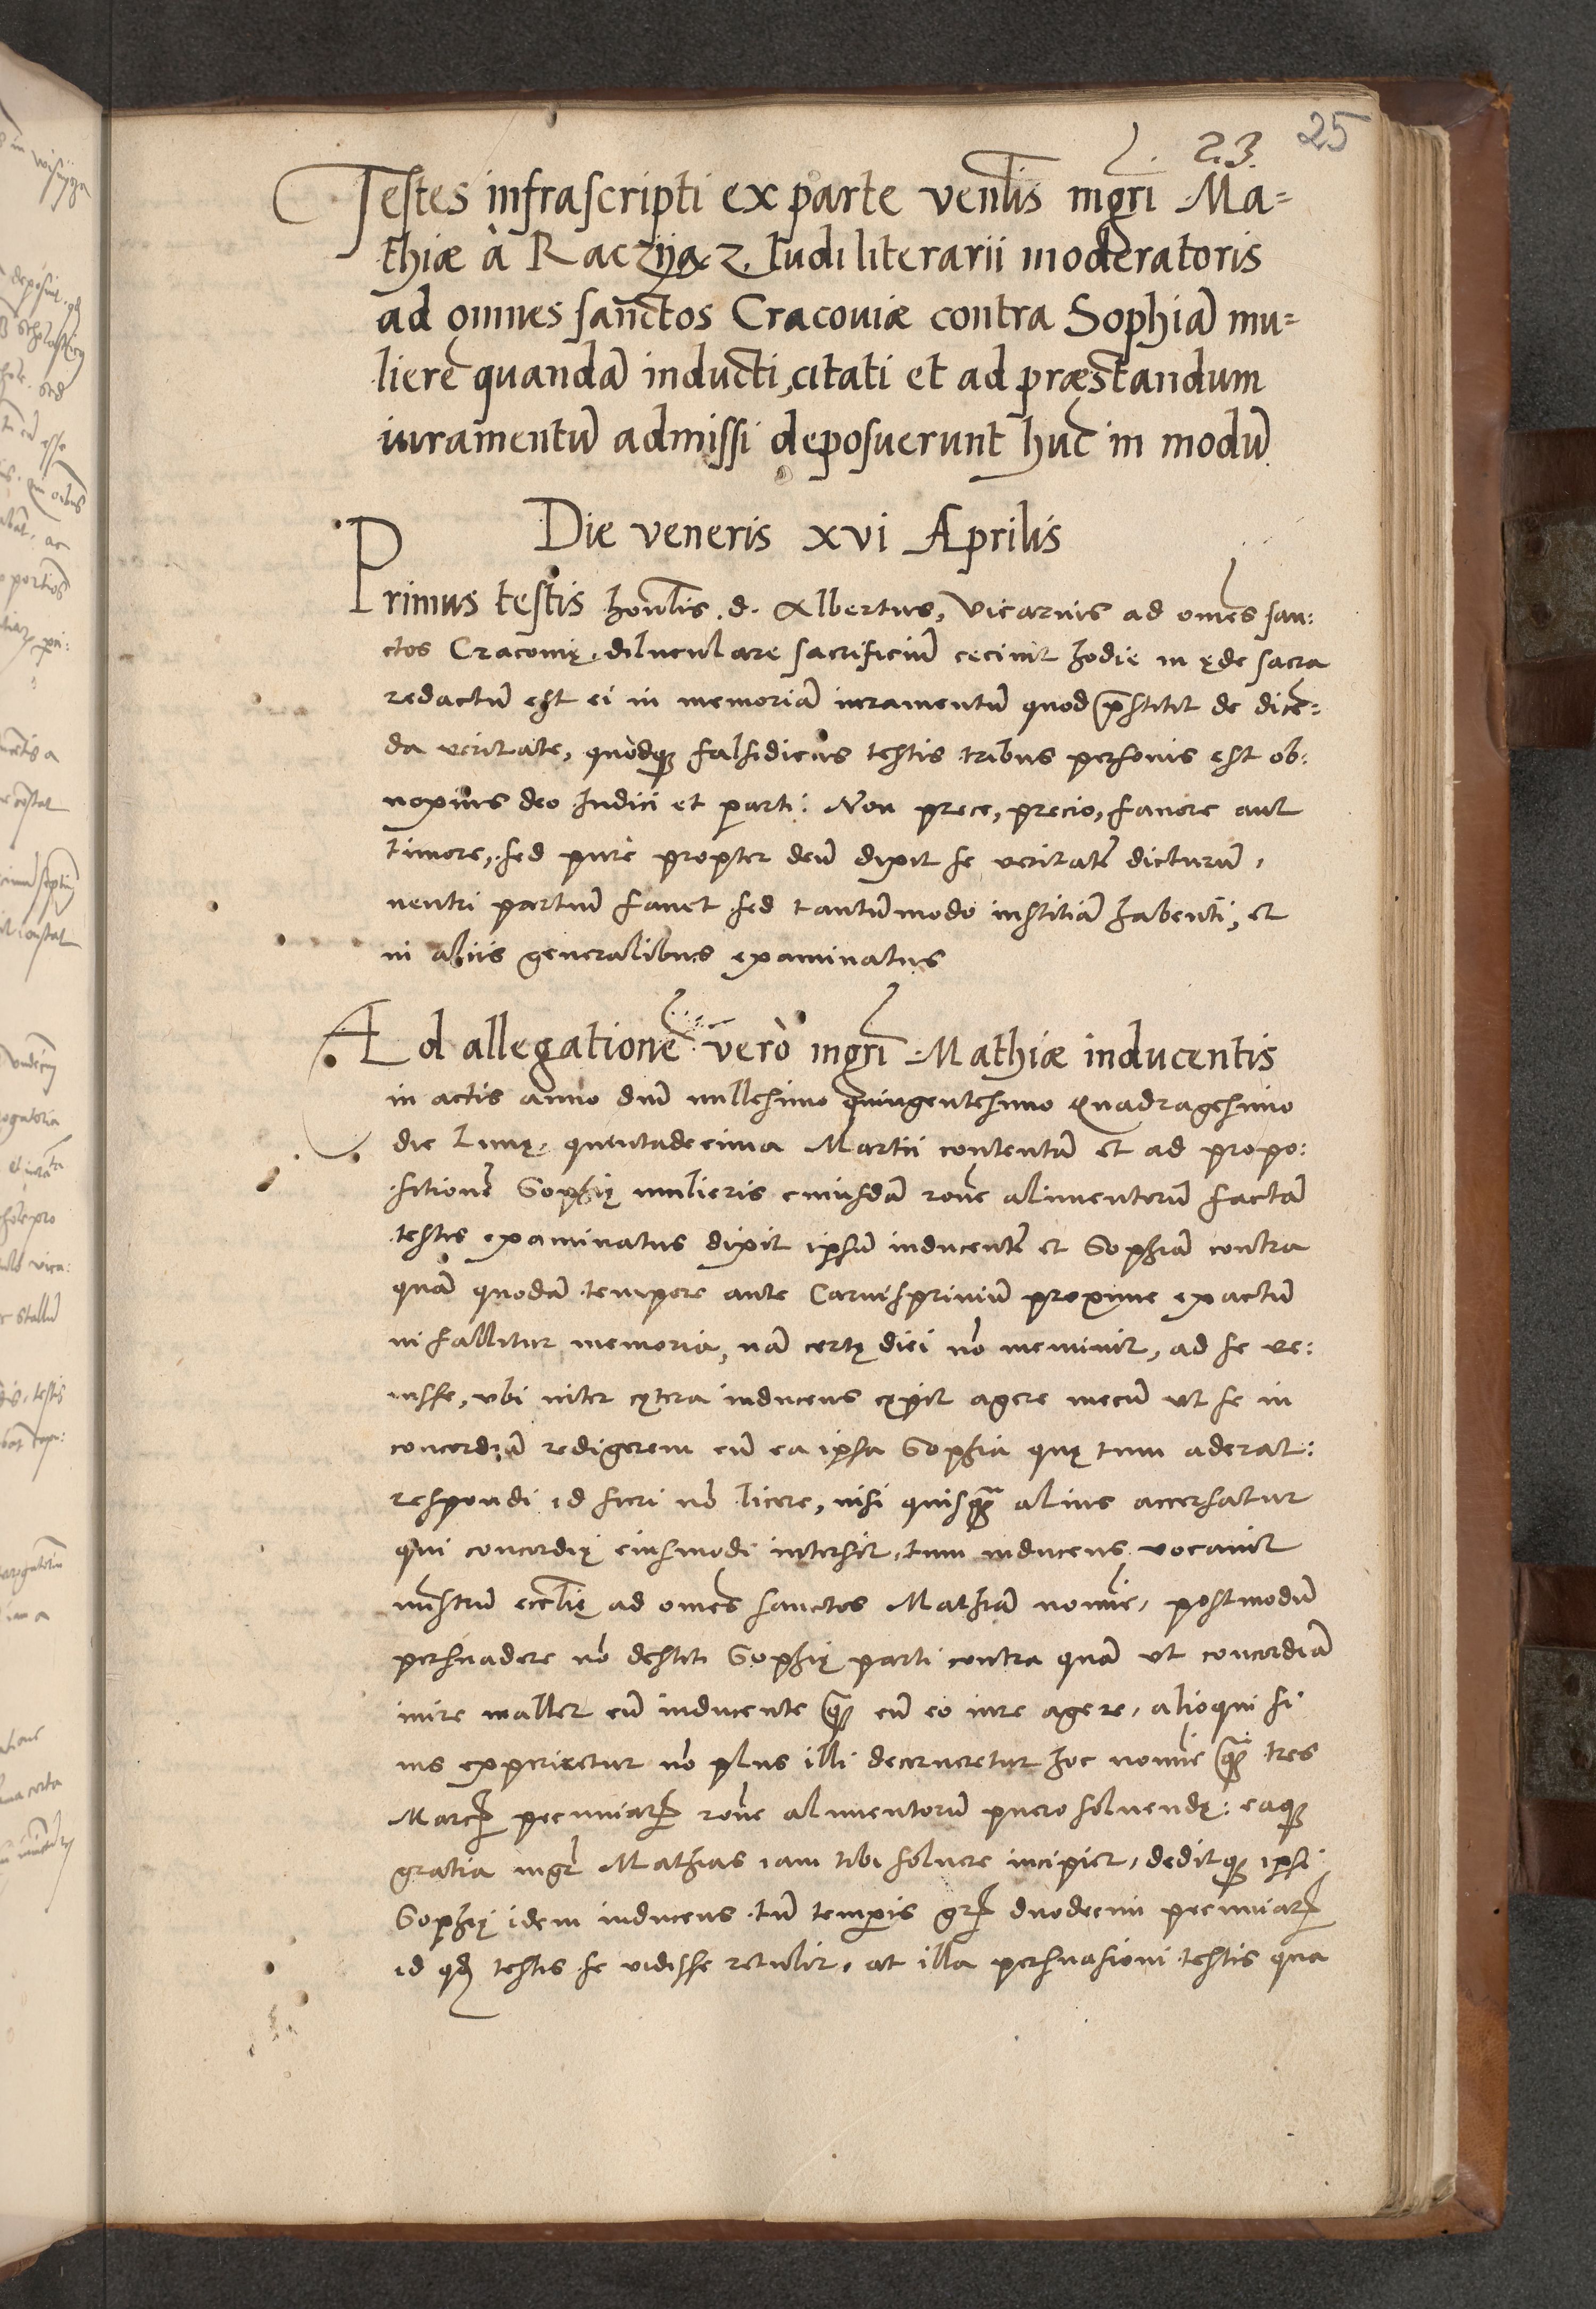 25
23
Testes infrascripti ex parte venłis mgrī Ma=
thiæ à Racziąż ludi literarii moderatoris
ad omnes sanctos Cracoviæ contra Sophiā mu=
lierē quandā inducti, citati et ad præstandum
iuramentū admissi deposuerunt hūc in modū
Die veneris xvi Aprilis
Primus testis honłis .d. Albertus, vicarius ad omēs san:
ctos Cracovię, diluculare sacrificiū cecinit hodie in ęde sacra
redactū est ei in memoriā iuramentū quod p̄stitit de dicē:
da veritate, quòdq; falsidicus testis tribus personis est ob:
noxius deo Iudici et parti: Non prece, precio, favore aut
timore, sed purè propter deū dixit se veritatē dicturū,
neutri partiū favet sed tantūmodo iustitiā habenti, et
in aliis generalibus examinatus
Ad allegationē verò mgrī Mathiæ inducentis
in actis anno dnī millesimo quingentesimo Quadragesimo
die Lunę, quintadecima Martii contentā et ad propo:
sitionē Sophię mulieris cuiusdā rōne alimentorū factā
testis examinatus dixit ipsū inducentē et Sophiā contra
quā quodā tempore ante Carnisprivium proxime exactū
ni fallitur memoria, nā certę diei nō meminit, ad se ve:
nisse, ubi inter cętera inducens cępit agere mecū ut se in
concordiā redigerem cū ea ipsa Sophia quę tum aderat:
respondi id fieri nō licere, nisi quisq̄ alius accersatur
qui concordię eiusmodi intersit, tum inducens vocavit
mnstrum eccłię ad omēs sanctos Mathiā nomīe, postmodū
persuadere nō destiti Sophię parti contra quā ut concordiā
inire mallet cū inducente q̄ cū eo iure agere, alioqui si
ius experiretur nō plus illi decerneretur hoc nomīe q̄ tres
Marcꝝ pecuniarꝝ rōne alimentorū puero solvendę: eaq;
gratia mgr̄ Mathias iam tibi solvere incipiet, deditq; ipsi
Sophię idem inducens tū temp̄is grꝝ duodecim pecuniarꝝ
id qđ testis se vidisse retulit, at illa persuasioni testis qua